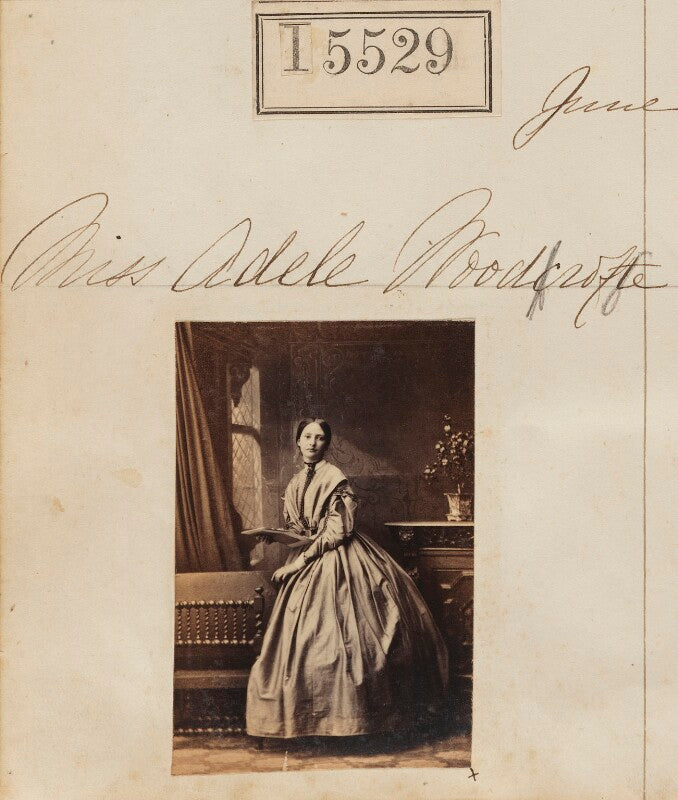 15529
June
Miss Adele Woodcrofte
x